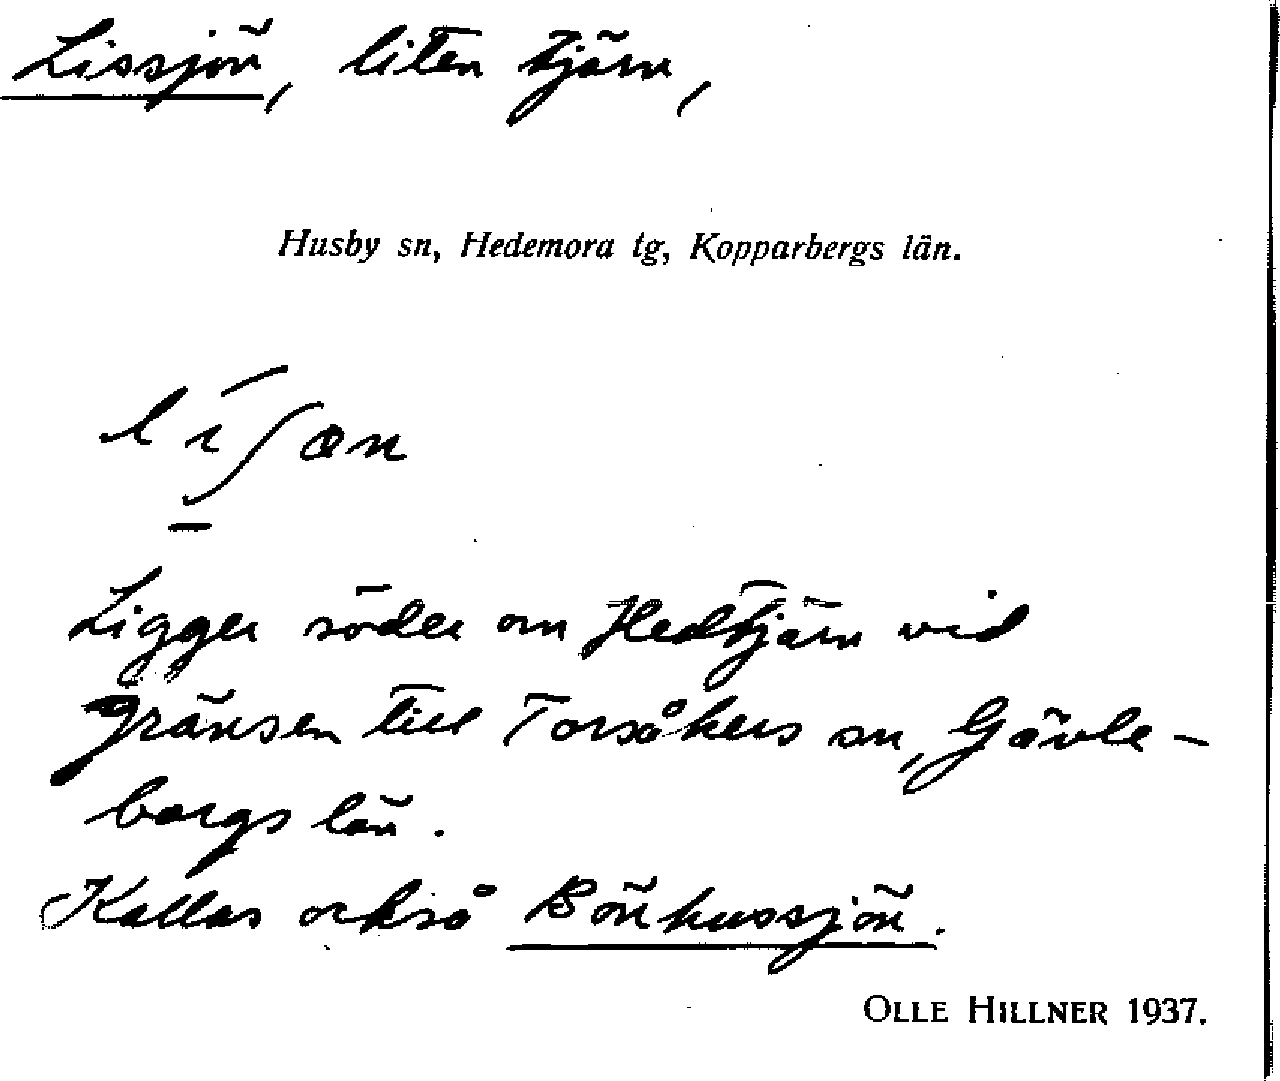 Lissjön, liten tjärn,
Husby sn, Hedemora tg, Kopparbergs län.
Ligger söder om Hedtjärn vid
gränsen till Torsåkers sn, Gävle-
borgs län.
Kallas också Bönhussjön.
OLLE HILLNER 1937.